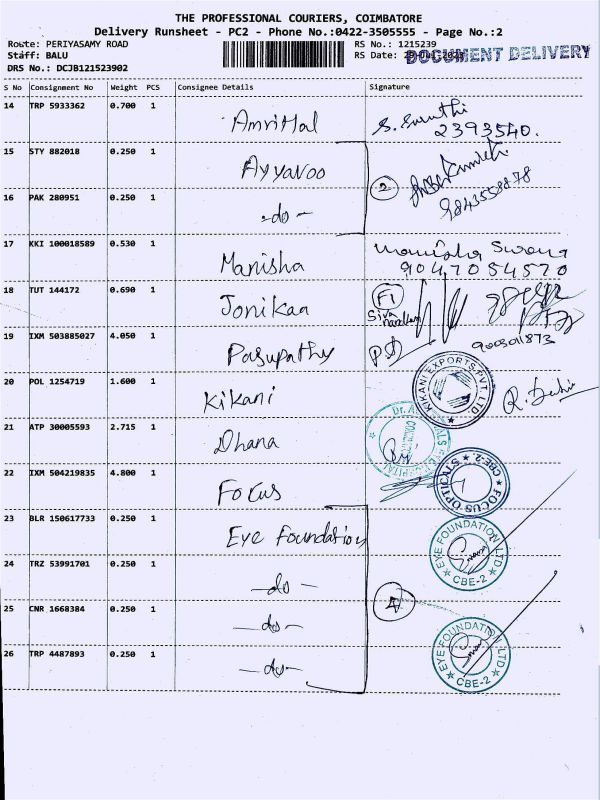 THE PROFESSIONAL COURIERS, COIMBATORE
Delivery Runsheet - PC2 - Phone No.:0422-3505555 - Page No.:2
Route: PERIYASAMY ROAD RS No.: 1215239
Staff: BALU RS Date: DOCUMENT DELIVERY
DRS No.: DCJB121523902
S No Consignment No Weight PCS Consignee Details Signature
14 TRP 5933362 0.700 1 Amrithal S. Sumithi
2393540.
15 STY 882018 0.250 1 Ayyavoo
16 PAK 280951 0.250 1 -do- 2 9843558878
17 KKI 100018589 0.530 1 Manisha Manisha Surana
9047054570
18 TUT 144172 0.690 1 Jonikaa F1
Siva
19 IXM 503885027 4.050 1 Pasupathy 9003011873
20 POL 1254719 1.600 1 Kikani KIKANI EXPORTS PVT. LTD R. Devi
21 ATP 30005593 2.715 1 Dhana
22 IXM 504219835 4.800 1 Focus FOCUS OPTICALS CBE-2
23 BLR 150617733 0.250 1 Eye Foundation EYE FOUNDATION LTD CBE-2
24 TRZ 53991701 0.250 1 -do-
25 CNR 1668384 0.250 1 -do- 4
26 TRP 4487893 0.250 1 -do- EYE FOUNDATION LTD CBE-2